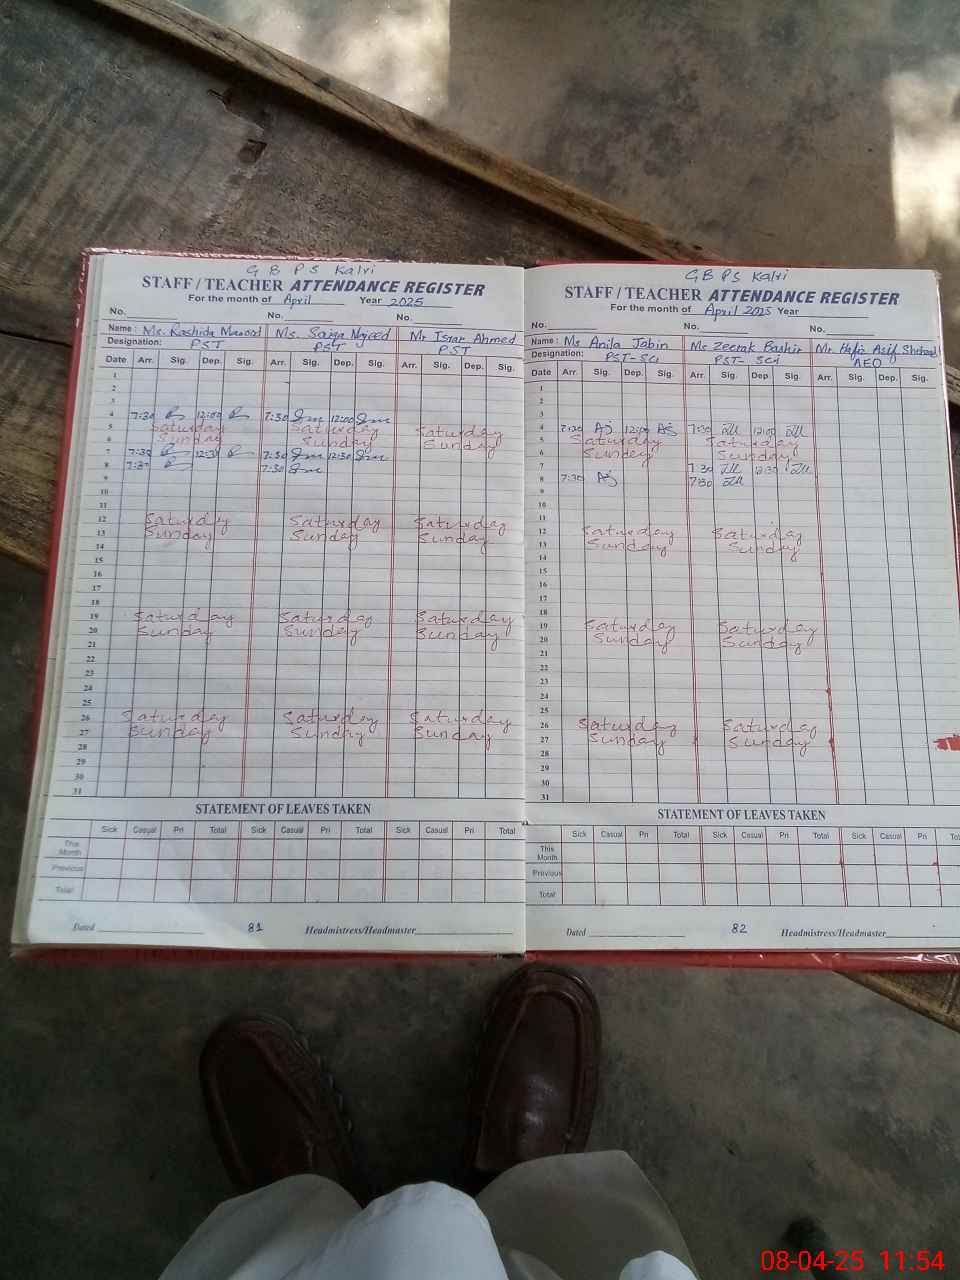 G B P S Kalri
STAFF / TEACHER ATTENDANCE REGISTER
For the month of April Year 2025
No. No. No.
Name : Ms. Rashida Masood Ms. Saiqa Majeed Mr Israr Ahmed
Designation: PST PST PST
Date Arr. Sig. Dep. Sig. Arr. Sig. Dep. Sig. Arr. Sig. Dep. Sig.
1
2
3
4 7:30 12:00 7:30 12:00
5 Saturday Saturday Saturday
6 Sunday Sunday Sunday
7 7:30 12:30 7:30 12:30
8 7:30 7:30
9
10
11
12 Saturday Saturday Saturday
13 Sunday Sunday Sunday
14
15
16
17
18
19 Saturday Saturday Saturday
20 Sunday Sunday Sunday
21
22
23
24
25
26 Saturday Saturday Saturday
27 Sunday Sunday Sunday
28
29
30
31
STATEMENT OF LEAVES TAKEN
Sick Casual Pri Total Sick Casual Pri Total Sick Casual Pri Total
This Month
Previous
Total
Dated 81 Headmistress/Headmaster
GBPS Kalri
STAFF / TEACHER ATTENDANCE REGISTER
For the month of April 2025 Year
No. No. No.
Name : Ms Anila Jabin Ms Zeerak Bashir Mr. Hafiz Asif Shehzad
Designation: PST-SCI PST-SCI AEO
Date Arr. Sig. Dep. Sig. Arr. Sig. Dep. Sig. Arr. Sig. Dep. Sig.
1
2
3
4 7:30 AJ 12:00 AJ 7:30 12:00
5 Saturday Saturday
6 Sunday Sunday
7 7:30 12:30
8 7:30 AJ 7:30
9
10
11
12 Saturday Saturday
13 Sunday Sunday
14
15
16
17
18
19 Saturday Saturday
20 Sunday Sunday
21
22
23
24
25
26 Saturday Saturday
27 Sunday Sunday
28
29
30
31
STATEMENT OF LEAVES TAKEN
Sick Casual Pri Total Sick Casual Pri Total Sick Casual Pri
This Month
Previous
Total
Dated 82 Headmistress/Headmaster
08-04-25 11:54